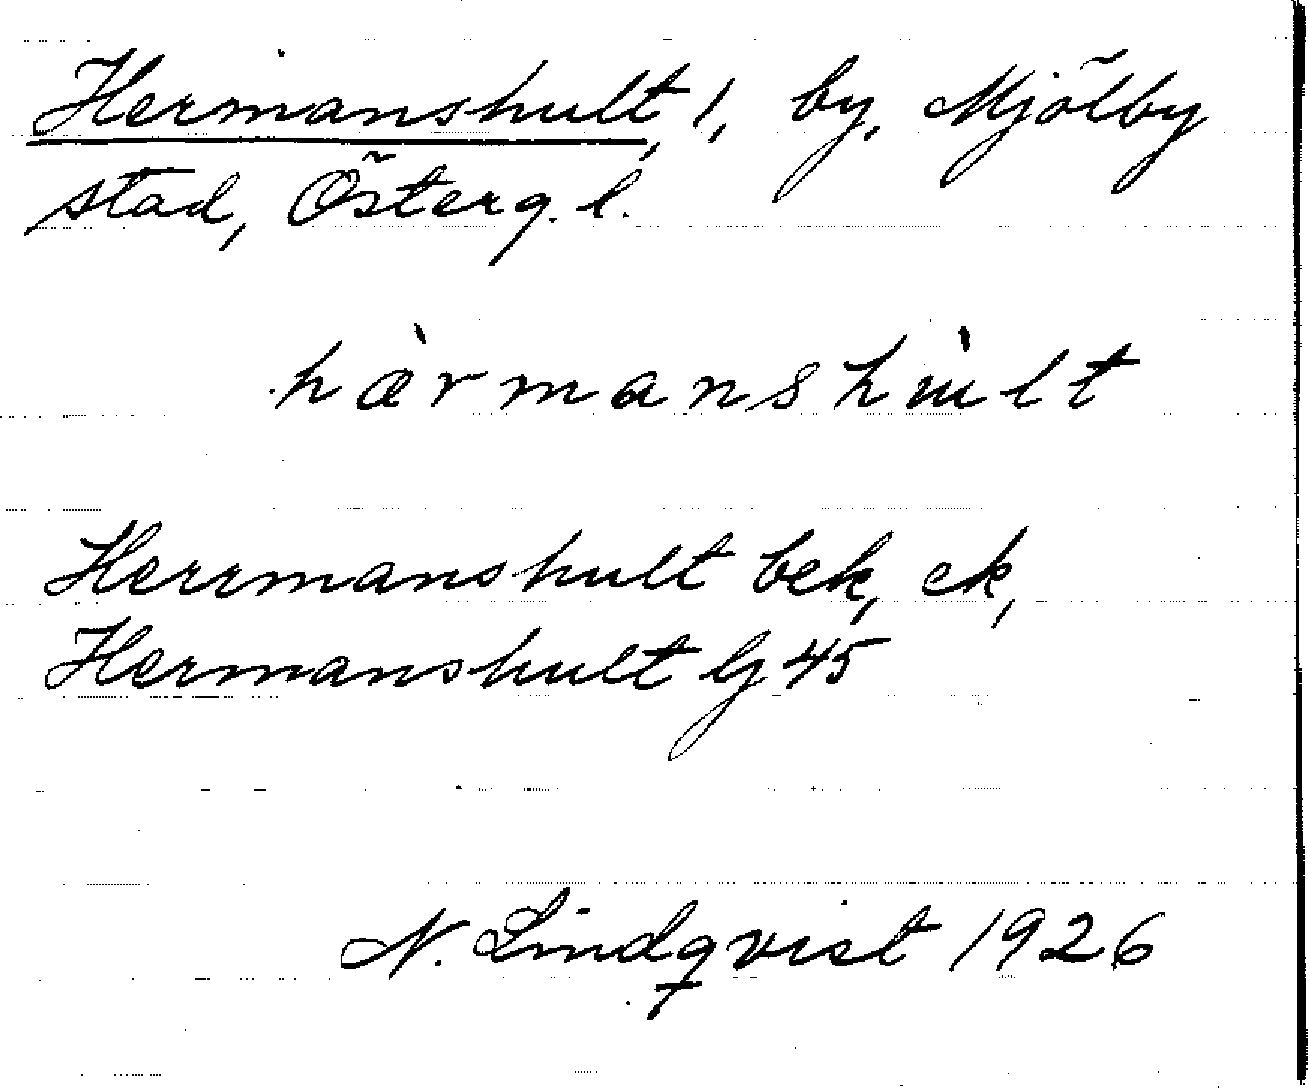 Hermanshult, 1, by, Mjölby
stad, Österg. l.
hæ̀rmanshùlt
Herrmanshult bek, ek,
Hermanshult Gj 45
N. Lindqvist 1926